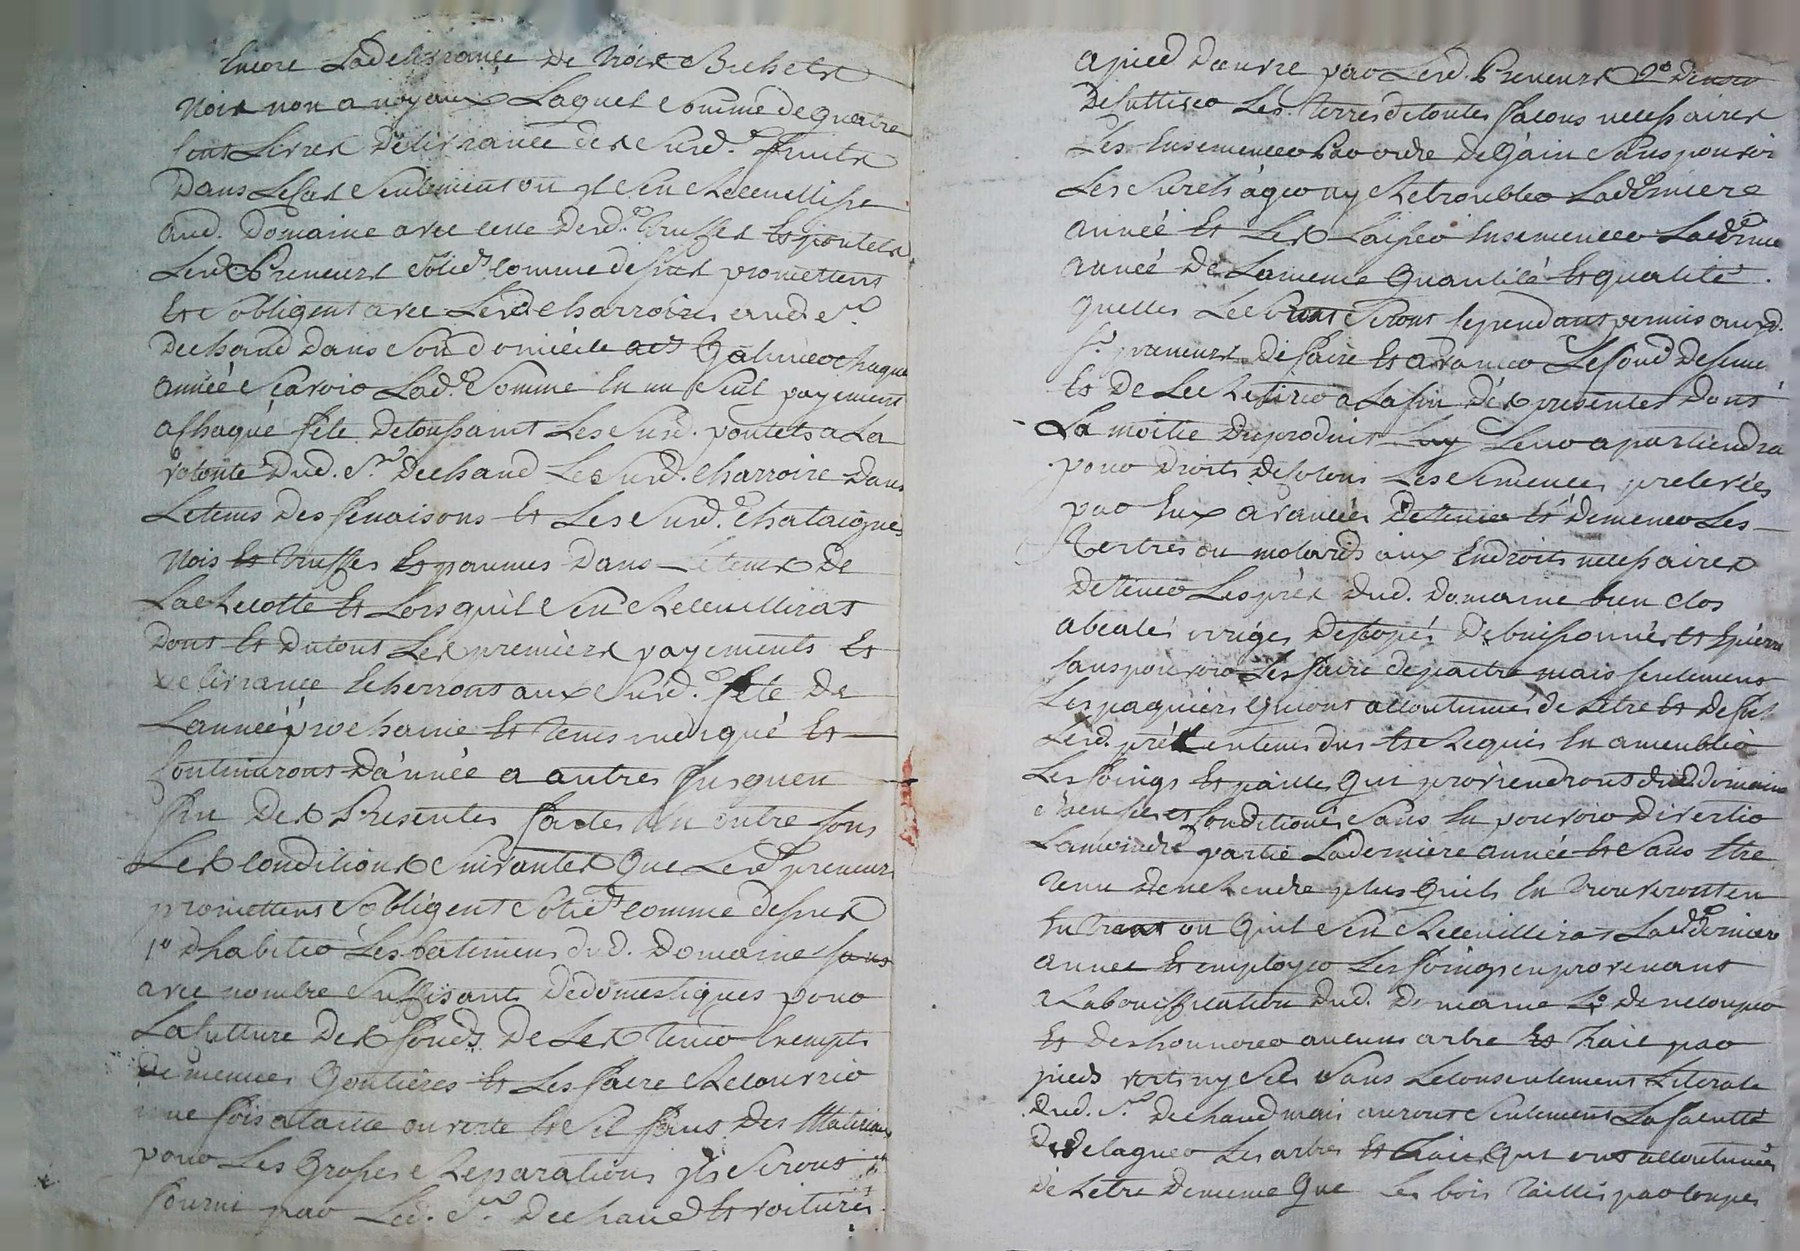 Encore La delivrance de trois Bichets
Noix non a noyaux Laquel somme de quatre
Cent Livres delivrance des Susd. fruits
Dans Le Cas Seulement ou jl Sen Recueillisse
aud. Domaine avec celle desd. truffes Et poulets
Lesd Preneurs Solid. comme dessus promettent
Et Sobligent avec Lesd charroires aud Sr.
Dechaud dans Son domicile chaque
année Scavoir Lad. Somme En un Seul payement
a chaque fête de toussaint Les Susd. poulets a La
volonte dud. Sr. Dechaud Le Susd. charroire Dans
Letems des fenaisons Et Les Susd. chataignes
Nois Et truffes Et paumes Dans Letems De
La Recolte Et Lors quil Sen Recueilliras
Dont Et Dutout Les premiers payements Et
delivrance Echerront aux Susd. fête De
Lannée prochaine Et tems indiqué Et
Continuront Dannée a autres Jusquen
fin Des Presentes En outre Sous
Les conditions Suivantes Que Lesd preneurs
promettent Sobligent Solid. comme dessus
1o dhabiter Les batimens dud. Domaine
avec nombre Suffisant De domestiques pour
La Culture Des fonds De Les tenir Exempt
De menues Goutieres Et Les faire Recouvrir
une fois a taille ouverte Et Sil faut Des Materiaux
pour Les Grosses Reparations jls Seront
fourni par Led. Sr. Dechaud Et voiturés
a pied Dœuvre par Lesd. Preneurs 2o De
De Cultiver Les terres de toutes facons necessaires
Les Ensemencer Par ordre De Gain Sans pouvoir
Les Surchager ny Retroubler La derniere
année Et Les Laisser Ensemencer Lad. derniere
année De La meme Quantité Et qualité
quelles Le Seront Cependant permis auxd.
Srs. preneurs De faire Et avancer Le fond De
Et De Le Retirer a La fin Des presentes Dont
La moitié Du produit Leur apartiendra
pour Droits De Colons Les Semences prelevées
par Eux avancées De tenir Et De mener Les
tertres ou molards aux Endroits necessaires
De tenir Les prés Dud. Domaine bien clos
abealés De buissonnés Et Epierrés
Sans pouvoir Les faire depaitre mais Seulement
Les paquiers Qui ont accoutumés de Letre Et De Sur
Lesd. prés Entenu dus Et Requis En ameublir
Les foings Et pailles Qui proviendront dud domaine
bien Secs Et Conditionés Sans En pouvoir Divertir
La moindre partie La derniere année Et Sans Etre
tenu De ne Rendre plus Quils En trouveront en
Entrant ou Quil Sen Recueilliras Lad. derniere
année Et employer Les foings en provenant
a La bonification Dud. Domaine 4o De ne couper
Et Deshonnorer aucuns arbre Et haie par
pieds verts ny Secs Sans Le consentement Literale
Dud. Sr. Dechaud mais auront Seulement La faculté
De delaguer Les arbres Et haie Qui ont accoutumés
De Letre De meme Que Les bois taillis par coupes